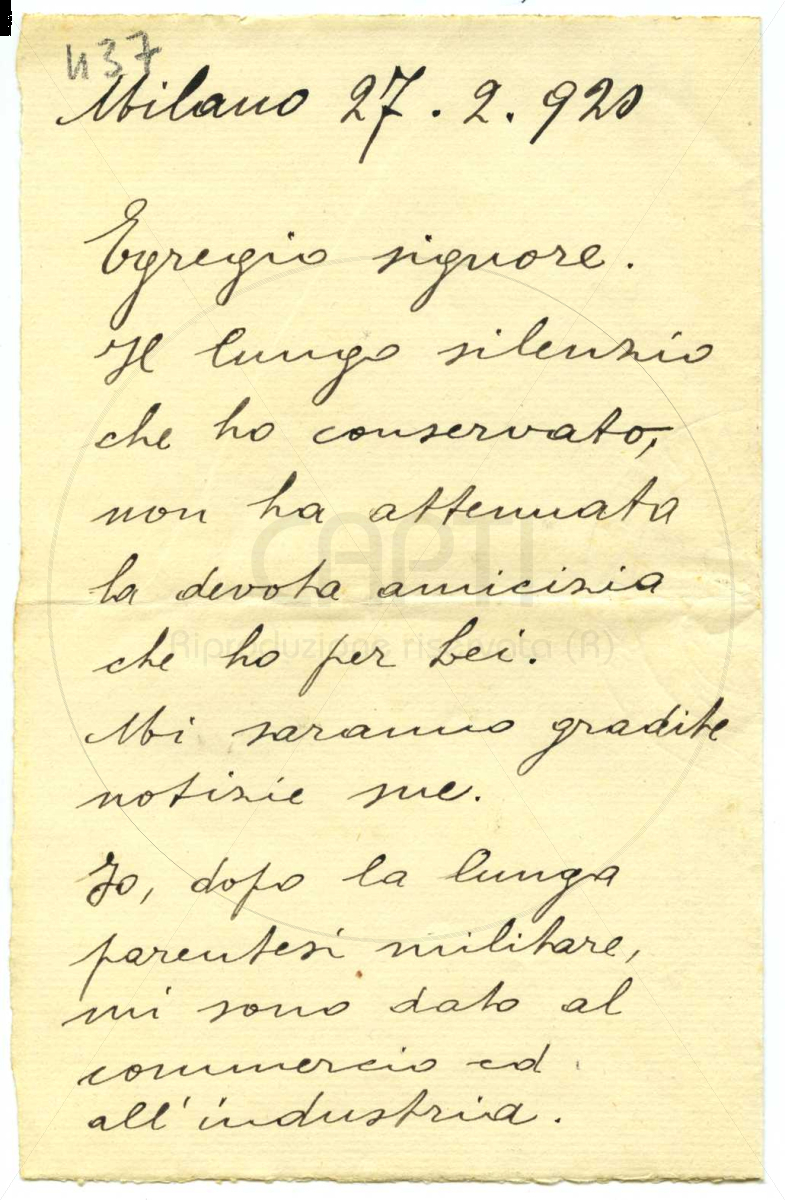 437
Milano 27. 2. 920
Egregio signore.
Il lungo silenzio
che ho conservato,
non ha attenuata
la devota amicizia
che ho per Lei.
Mi saranno gradite
notizie sue.
Io, dopo la lunga
parentesi militare,
mi sono dato al
commercio ed
all'industria.
CAPTI
Riproduzione riservata (R)